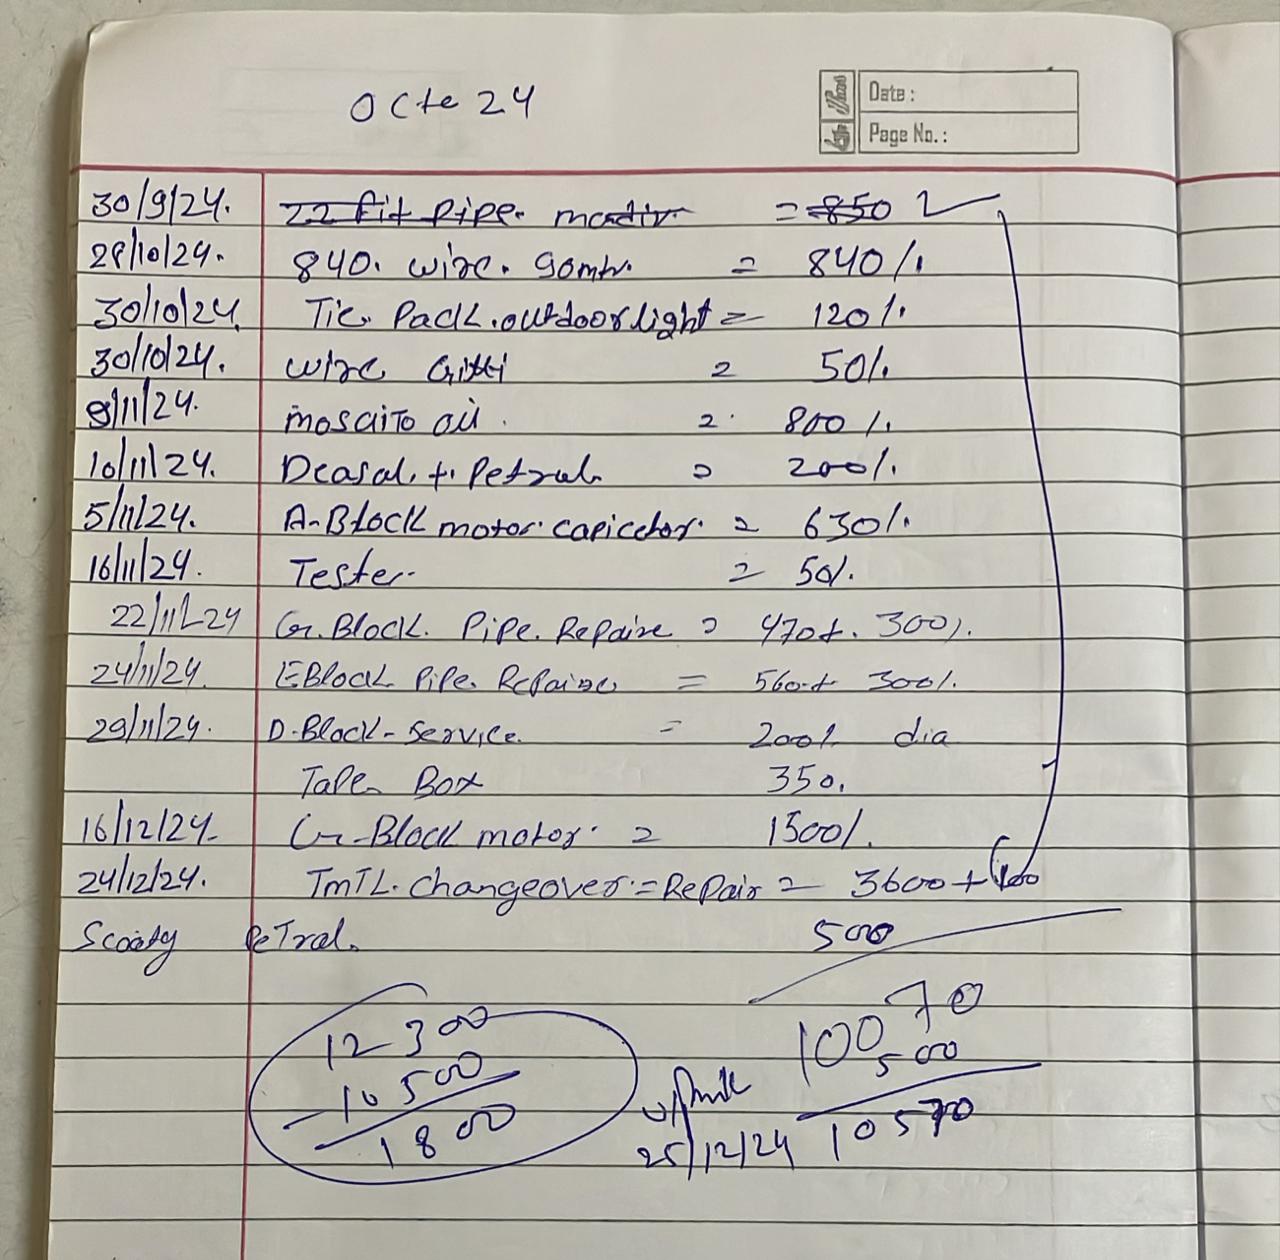 Octe 24
Date :
Page No. :
30/9/24. 22 fit Pipe. = 850
28/10/24. 840. wire. 90mtr. = 840/.
30/10/24. Tie. Pack. outdoor light = 120/.
30/10/24. wire Gitti = 50/.
8/11/24. mosaito oil. = 800/.
10/11/24. Deasal. +. Petral. = 200/.
5/11/24. A-Block motor. capicetor. = 630/.
16/11/24. Tester. = 50/.
22/11/24 Gr. Block. Pipe. Repaire = 470+. 300/.
24/11/24. E Block Pipe. Repaire = 560+ 300/.
29/11/24. D-Block - Service. = 200/. dia
Tape Box 350.
16/12/24. Gr-Block motor. = 1500/.
24/12/24. TmTL. changeover. = Repair = 3600 + 100
Scooty PeTral. 500
12300
- 10500
1800
10070
500
10570
25/12/24